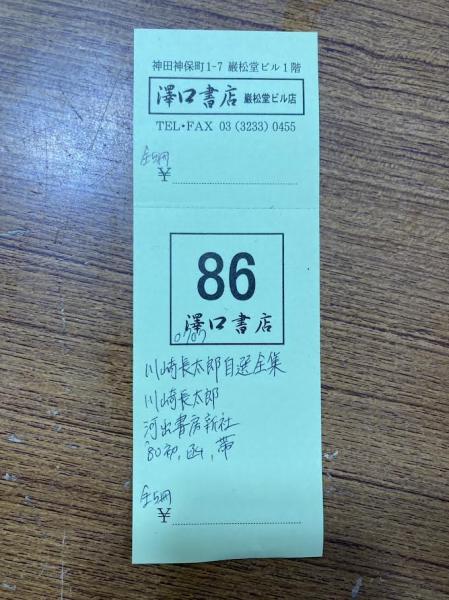 神田神保町1-7 巌松堂ビル1階
澤口書店 巌松堂ビル店
TEL・FAX 03 (3233) 0455
全5冊
¥
86
澤口書店
0707
川崎長太郎自選全集
川崎長太郎
河出書房新社
'80初，函，帯
全5冊
¥